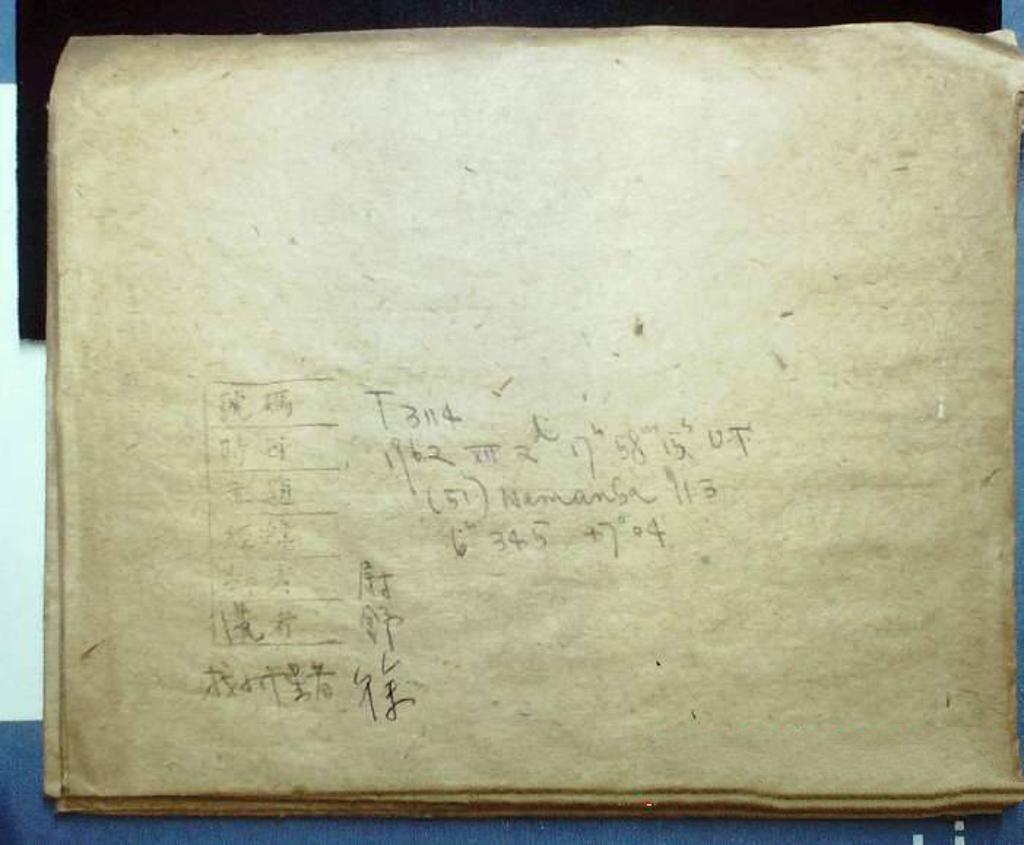 號碼 T 3114
時 1962 XII 2d 17h 58m 15s U.T
主題 (51) Nemausa 113
6h 345 +7°04
尉
舒
找小行星者 徐